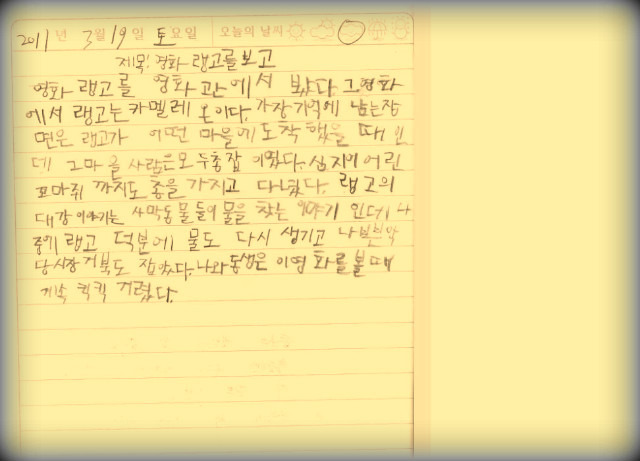 2011년 3월 19일 토요일 오늘의 날씨
제목: 영화 랭고를 보고
영화 랭고를 영화관에서 봤다. 그 영화
에서 랭고는 카멜레온이다. 가장 기억에 남는 장
면은 랭고가 어떤 마을에 도착했을 때 인
데 그 마을 사람은 모두 총잡이였다. 심지어 어린
꼬마쥐 까지도 총을 가지고 다녔다. 랭고의
대강 이야기는 사막동물들이 물을 찾는 이야기 인데 나
중에 랭고 덕분에 물도 다시 생기고 나쁜
당 시장 거북도 잡았다. 나와 동생은 이 영화를 볼 때
계속 킥킥 거렸다.